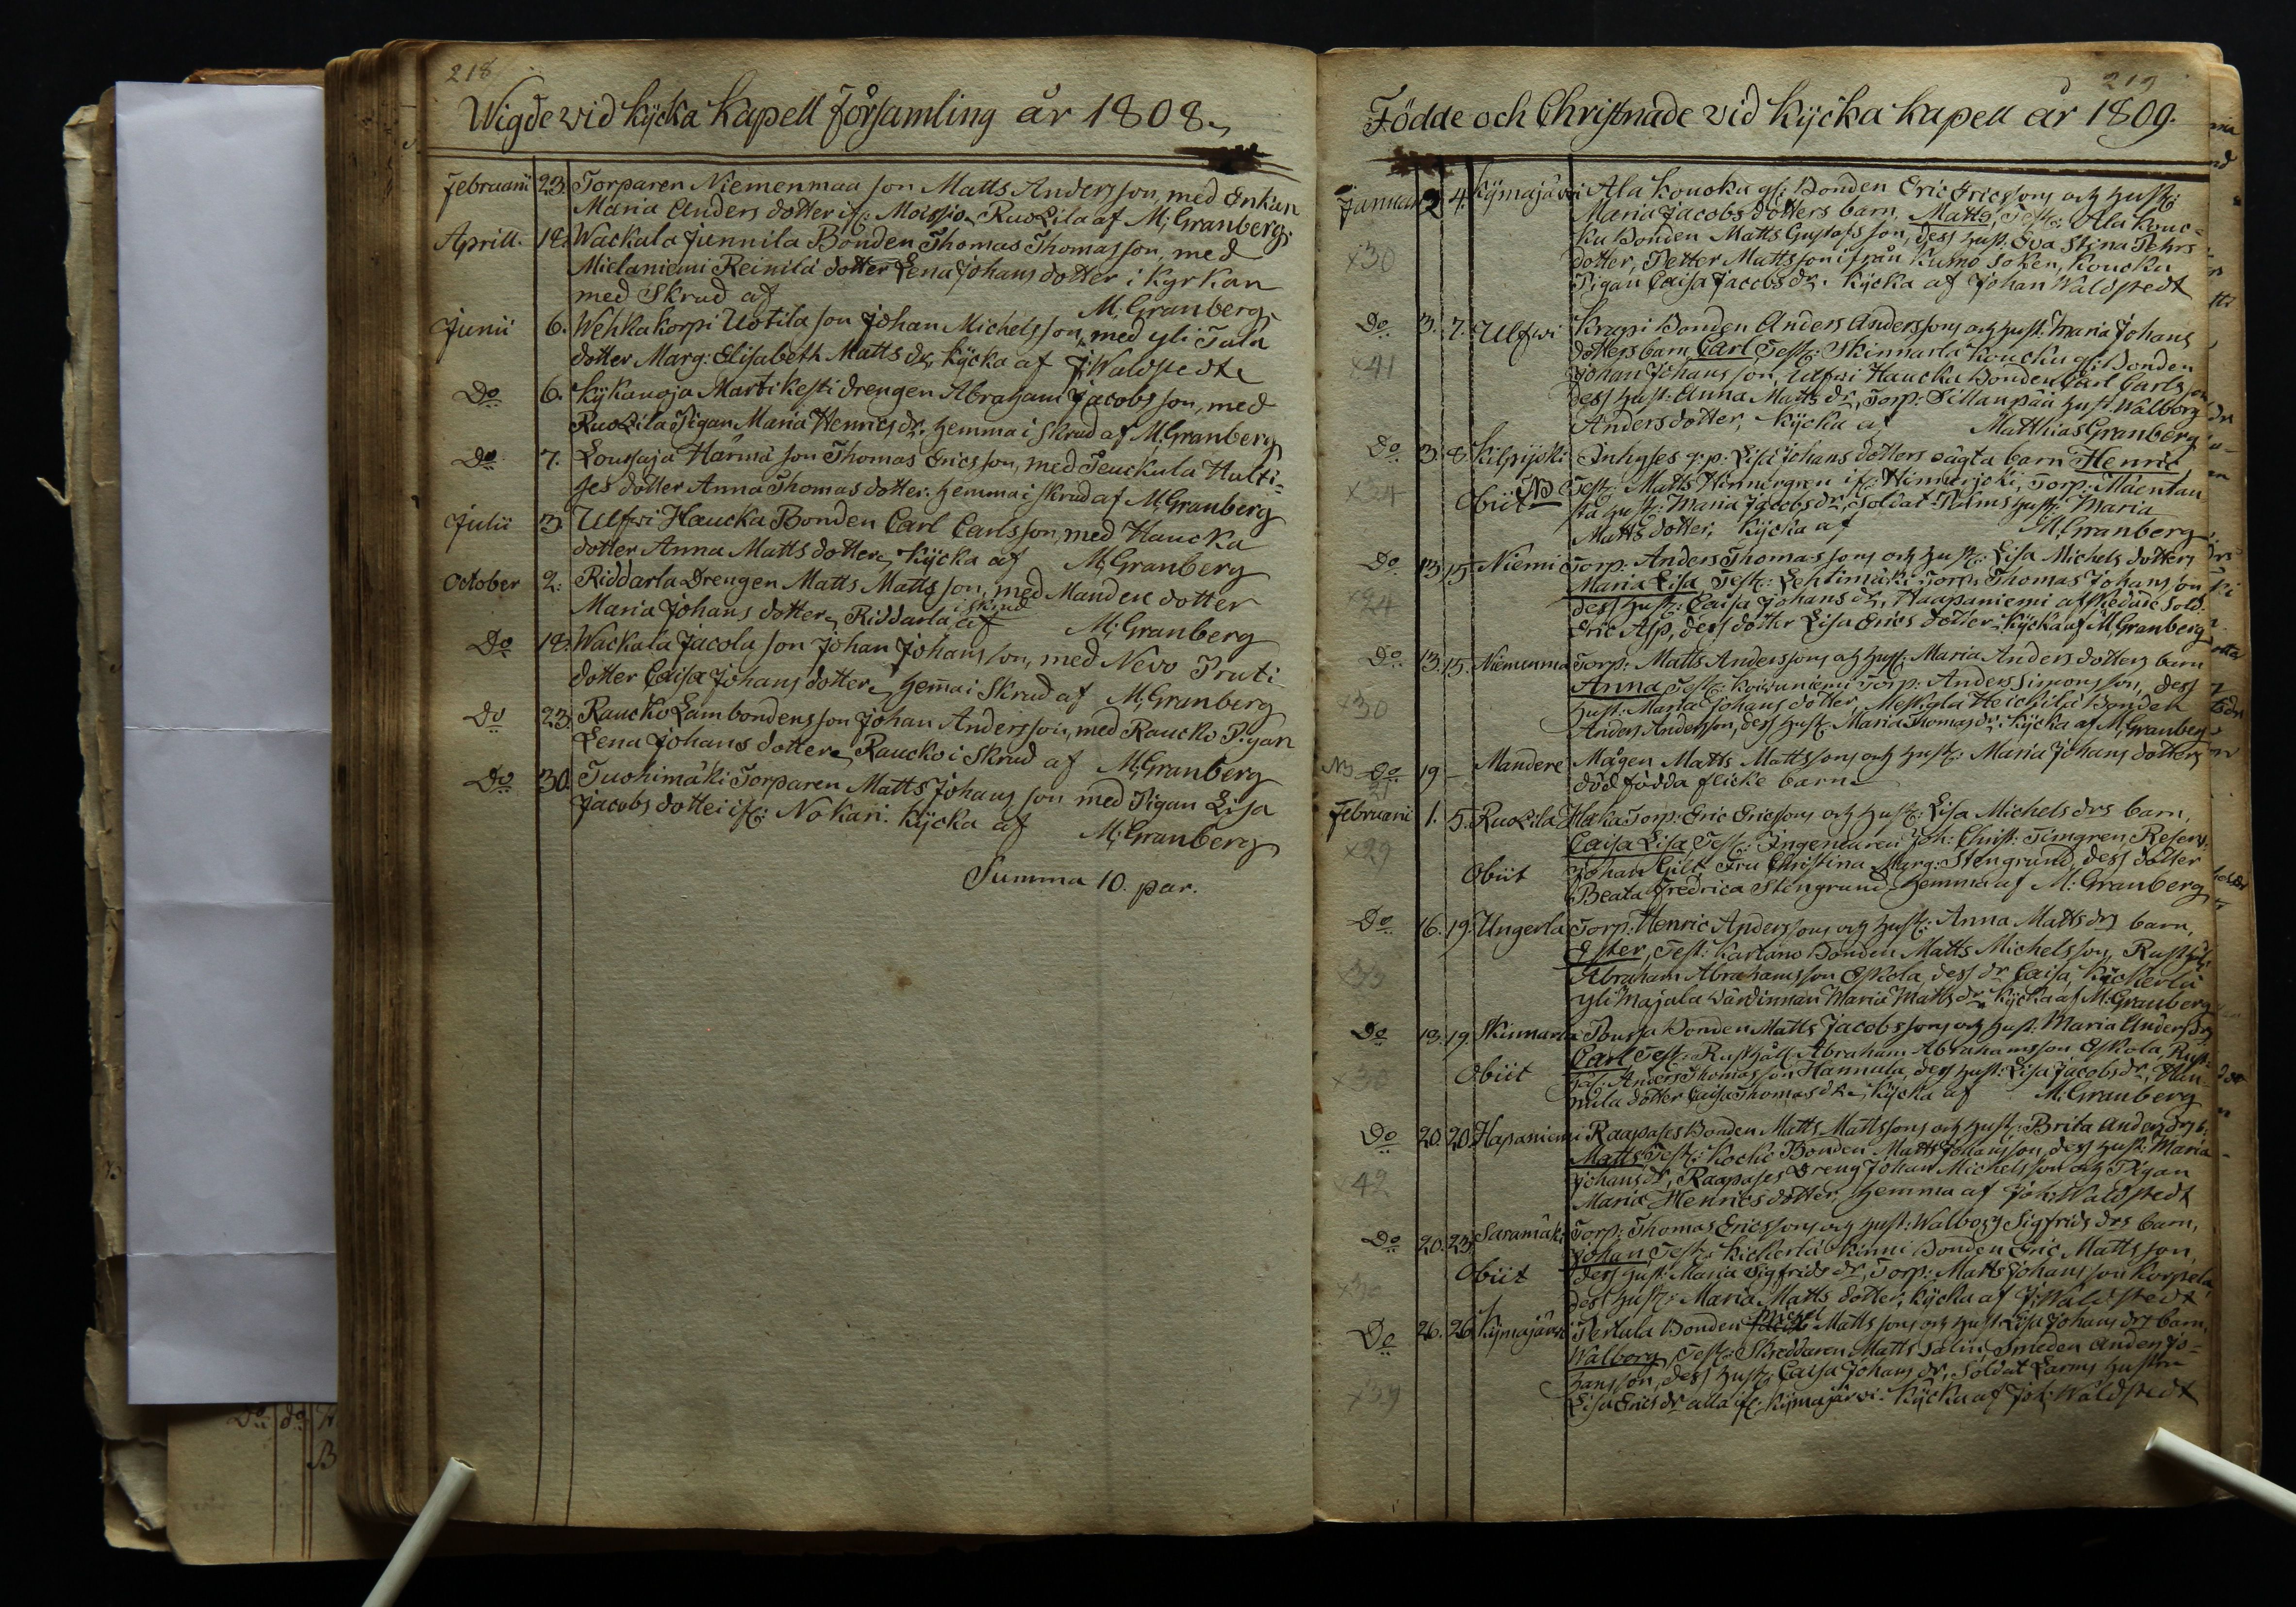 218
Wigde vid Kycka Kapell församling år 1808.
Februarii 23. Torparen Niemenmaa son Matts Andersson, med Enkan
Maria Anders dotter if: Moissio. Ruokila af M; Granberg.
Aprill. 18. Wackala Junnila Bonden Thomas Thomasson, med
Mielaniemi Reinilä dotter Lena Johans dotter i Kyrkan
med Skrud af M; Granberg.
Junii 6. Wehkakorpi Uotila son Johan Michelsson, med yli Tala
dotter Marg: Elisabeth Matts dr. Kycka af J: Waldstedt
Do 6. Kykanoja Martikesti drengen Abraham Jacobsson, med
Ruokila Pigan Maria Henrics dr. hemma i skrud af M. Granberg
Do 7. Loussaja Härmä son Thomas Ericsson, med Teuckula Hulti-
ses dotter Anna Thomas dotter. hemma i skrud af M; Granberg
Julii 3 Ulfwi Haucka Bonden Carl Carlsson, med Haucka
dotter Anna Matts dotter, Kycka af M; Granberg
October 2. Riddarla Drengen Matts Mattsson, med Mandere dotter
Maria Johans dotter, Riddarla i skrud af M; Granberg
Do 18. Wackala Jacola son Johan Johansson, med Nevo Pruti
dotter Caisa Johans dotter, hemma i Skrud af M; Granberg
Do 23. Raucko Lambondens son Johan Andersson, med Raucko Pigan
Lena Johans dotter, Raucko i Skrud af M; Granberg
Do 30. Tuohimäki Torparen Matts Johansson med Pigan Lisa
Jacobs dotter if: Nokari. Kycka af M; Granberg
Summa 10. par.
219
Födde och Christnade vid Kycka Kapell år 1809.
Januarii 2 4. Kymajärvi Ala Koucku gl: Bonden Eric Ericssons och hust:
Maria Jacobs dotters barn, Matts, Test: Ala Kouc-
ku Bonden Matts Gustafsson, dess hust. Eva Stina Pehrs
dotter, Petter Mattsson ifrån Kumo Soken, Koucku
Pigan Caisa Jacobs dr. Kycka af Johan Waldstedt
x30
Do 3. 7. Ulfwi Krapi Bonden Anders Anderssons och hust: Maria Johans
dotters barn, Carl Test: Skinnarla Koucku gl: Bonden
Johan Johansson, Ulfwi Haucka Bonden Carl Carlsson
dess hust: Anna Matts dr, Torp: Sillanpää hust. Walborg
Anders dotter, Kycka af Matthias Granberg
x41
Do 3. 8. Kilpijoki Inhyses q:p: Lisa Johans dotters oägta barn Henric,
Test: Matts Hinnergren if: Hinnerjoki, Torp:
hust: Maria Jacobs dr, Soldat hust: Maria
Matts dotter, Kycka af M; Granberg
x34 Obiit NB
Do 13. 15. Niemi Torp: Anders Thomassons och hust: Lisa Michels dotters
Maria Lisa Test: Lehtimäki Torp: Thomas Johansson
dess hust: Caisa Johans dr, Haapaniemi afskedade Sold:
Eric Alp, dess dotter Lisa Erics dotter. Kycka af M; Granberg
x24
Do 13. 15. Niemenma Torp: Matts Anderssons och hust: Maria Anders dotters barn
Anna, Test: Koiwuniemi Torp: Anders Simonsson, dess
hust: Maria Johans dotter, Meskala Heickilä Bonden
Anders Andersson, dess hust: Maria Thomas dr. Kycka af M; Granberg
x30
NB Do 19 - Mandere Mågen Matts Mattssons och hust: Maria Johans dotters
död födda flicke barn.
21
Februarii 1. 5. Ruokila Haka Torp: Eric Ericssons och hust: Lisa Michels drs barn,
Caisa Lisa, Test: Ingenieuren Joh: Christ: Timgren, Reserv:
Johan Gilt Fru Christina Marg: Stengrund, dess dotter
Beata Fredrica Stengrund. hemma af M: Granberg
x29 Obiit
Do 16. 19. Ungerla Torp: Henric Anderssons och hust: Anna Matts drs barn,
Ester, Test: Kartano Bonden Matts Michelsson, Rusthål:
Abraham Abrahamsson Eskola, dess dr Caisa, Kyckerlä
yli Majala värdinnan Maria Matts dr. Kycka af M: Granberg
Do 18. 19. Skinnarla Poussa Bonden Matts Jacobssons och hust: Maria Anders drs
Carl, Test: Rusthåll. Abraham Abrahamsson Eskola, Rust-
hål: Anders Thomasson Hannula, dess hust: Lisa Jacobs dr, Han-
nula dotter Caisa Thomas dr. Kycka af M; Granberg
x30 Obiit
Do 20. 20. Hapaniemi Raapases Bonden Matts Mattssons och hust: Brita Anders drs b:
Matts Test: Kocki Bonden Matts Johansson, dess hust: Maria
Johans dr, Raapases Dreng Johan Michelsson och Pigan
Maria Henrics dotter, hemma af Joh: Waldstedt
x42
Do 20. 23. Saramäki Torp: Thomas Ericssons och hust: Walborg Sigfrids drs barn,
Johan Test: Kickerlä Kinni Bonden Eric Mattsson,
dess hust: Maria Sigfrids dr, Torp: Matts Johansson Korpela,
dess hust: Maria Matts dotter, Kycka af J: Waldstedt
Obiit
Do 26. 26. Kymajärvi Pertula Bonden Michel Mattssons och hust: Lisa Johans drs barn,
Walborg, Test: Skreddaren Matts Salin, Smeden Anders Jo-
hansson, dess hust: Caisa Johans dr, Soldat Larms hustru
Lisa Erics dr alla if: Kymajärvi. Kycka af Joh: Waldstedt
x39